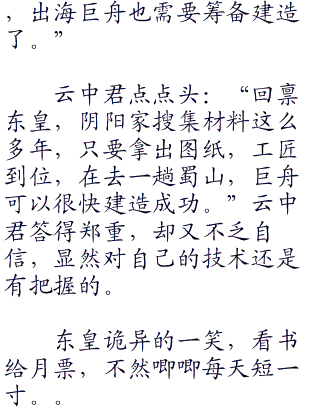 ，出海巨舟也需要筹备建造
了。”
云中君点点头：“回禀
东皇，阴阳家搜集材料这么
多年，只要拿出图纸，工匠
到位，在去一趟蜀山，巨舟
可以很快建造成功。”云中
君答得郑重，却又不乏自
信，显然对自己的技术还是
有把握的。
东皇诡异的一笑，看书
给月票，不然唧唧每天短一
寸。。